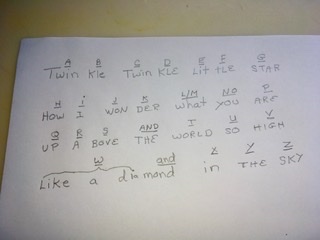 A B C D E F G
Twin Kle Twin KLE Lit tLe STAR
H i J K L/M N O P
How I WON DER what YOU ARE
Q R S AND T U V
UP A BOVE THE WORLD SO HIGH
W and X Y Z
Like a diamond in THE SKY